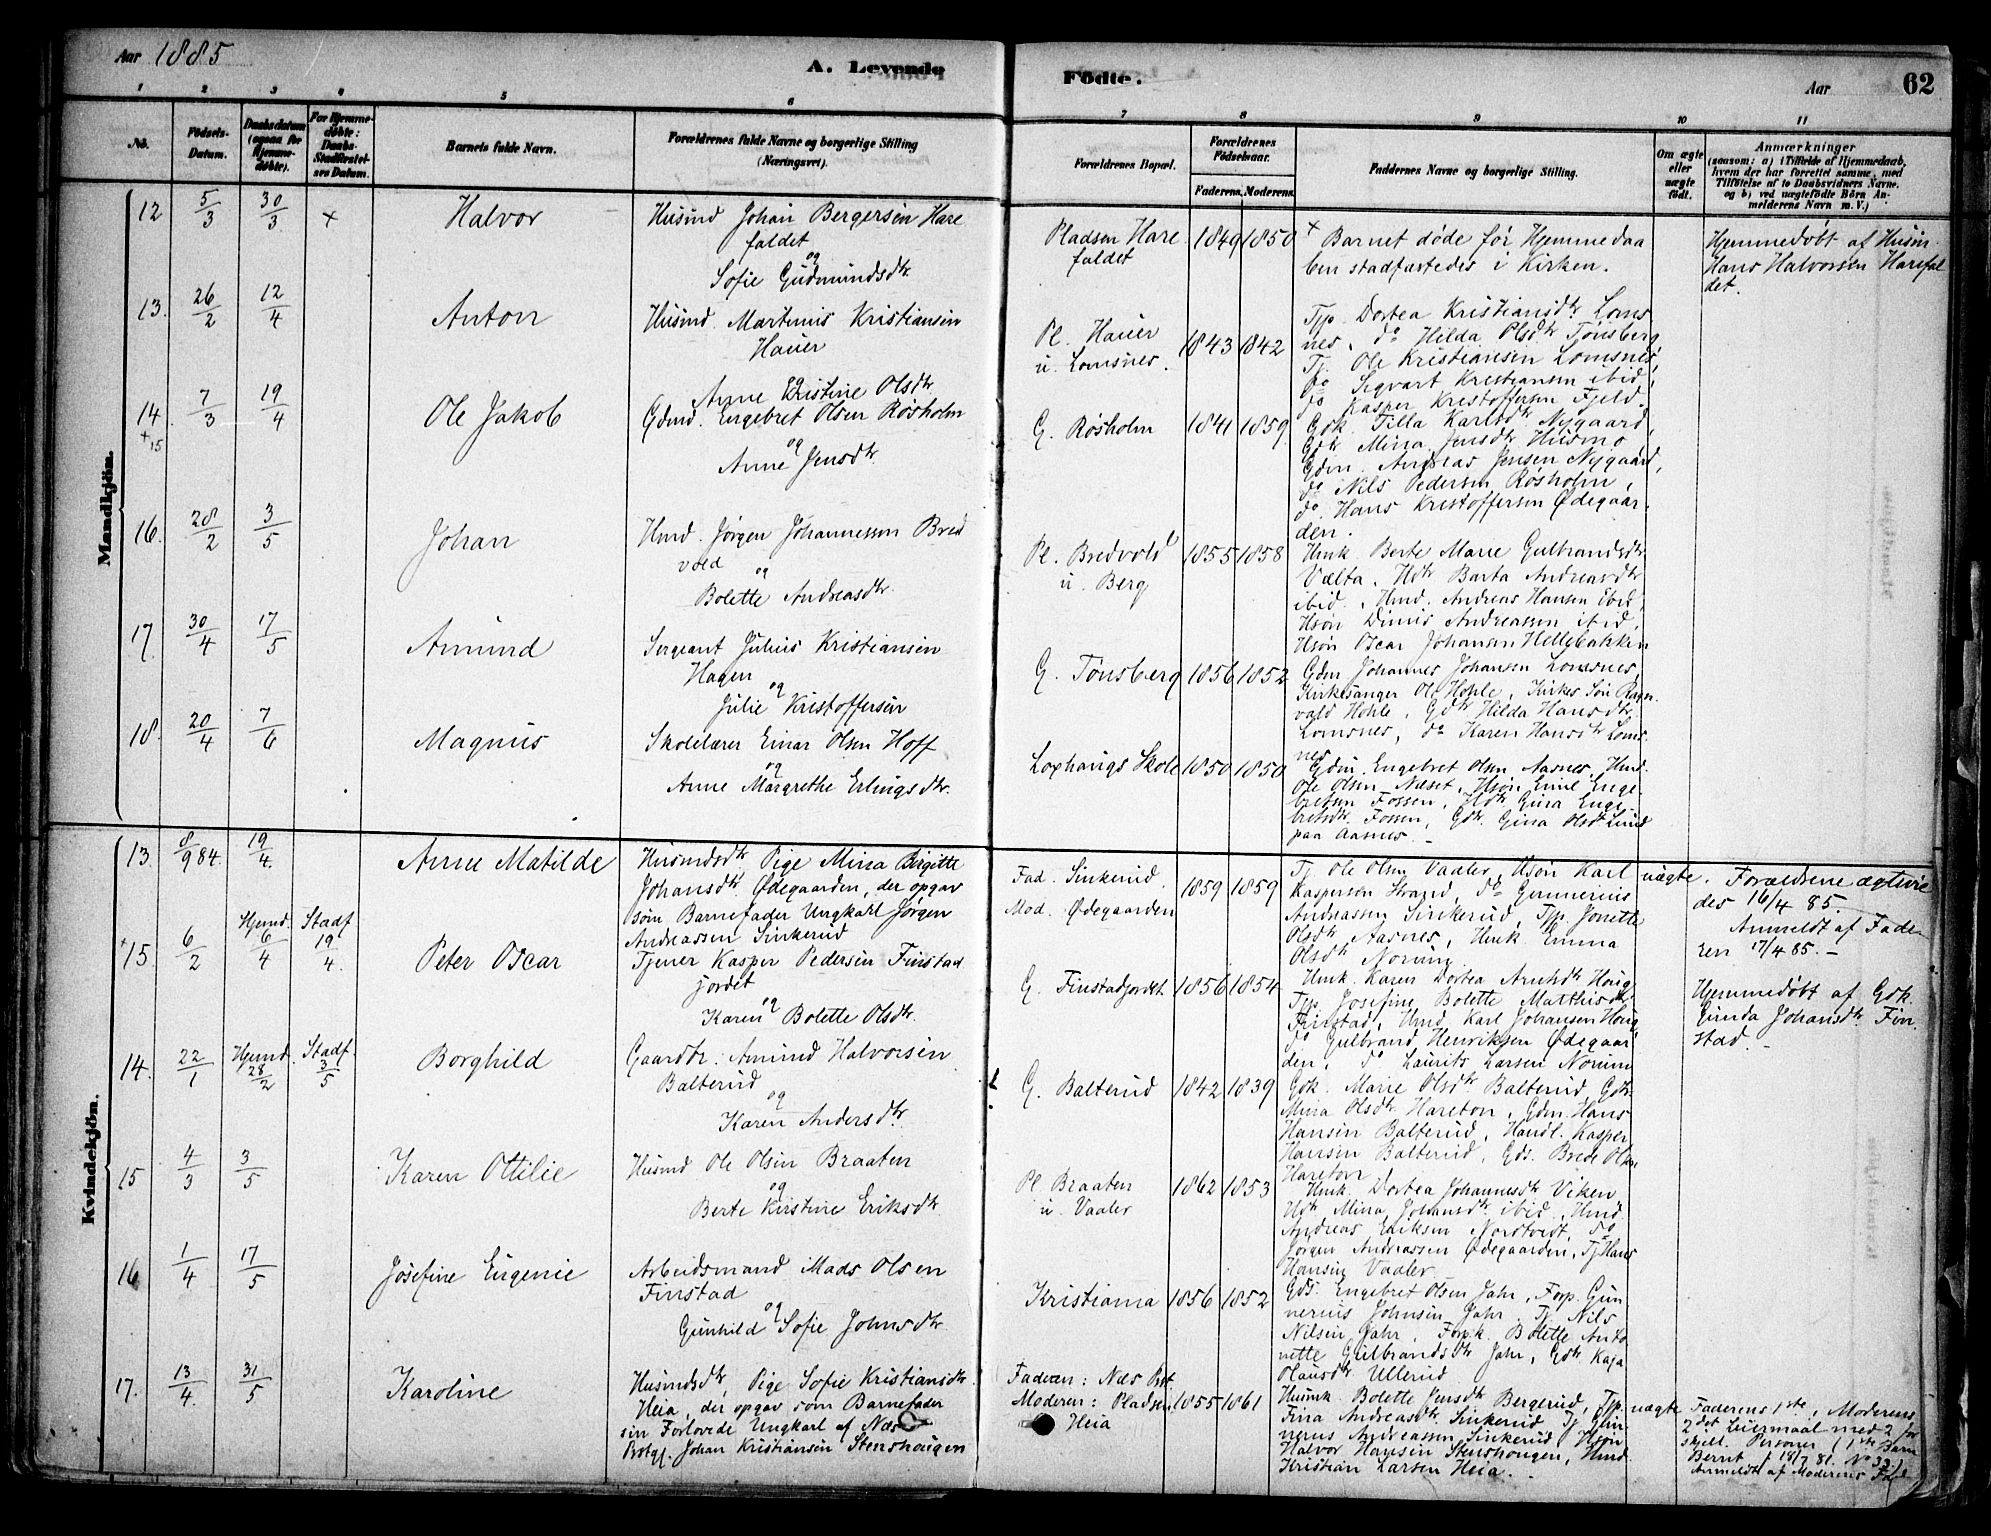 Aar 1885
A. Levende
Födte.
Aar
62
1 2 3 4 5 6 7 8 9 10 11
No.
Födsels-
Datum.
Daabsdatum
(ogsaa for
Hjemme-
døbte).
For Hjemme-
døbte:
Daabs-
Stadfæstel-
ses Datum.
Barnets fulde Navn.
Forældrenes fulde Navne og borgerlige Stilling
(Næringsvei).
Forældrenes Bopæl.
Forældrenes
Födselsaar.
Faderens. Moderens.
Faddernes Navne og borgerlige Stilling.
Om ægte
eller
uægte
født.
Anmærkninger
(saasom: a) i Tilfælde af Hjemmedaab,
hvem der har forrettet samme, med
Tilføielse af to Daabsvidners Navne,
og b) ved uægtefödte Börn An-
melderens Navn m. V.)
Mandkjön.
12 5/3 30/3 + Halvor
Husmd Johan Bergersen Hare
faldet
og
Sofie Gudmundsdtr
Pladsen Hare
faldet
1849 1850
+ Barnet døde før Hjemmedaa
ben stadfæstedes i Kirken.
Hjemmedøbt af Husm.
Hans Halvorsen Harefal
det.
13. 26/2 12/4 Anton
Husmd. Martinus Kristiansen
Hauer
og
Anne Kristine Olsdtr
Pl. Hauer
u. Lomsnes.
1843 1842
Tjp. Dortea Kristiansdtr Loms
nes, do Hilda Olsdtr Tønsberg,
Tj. Ole Kristiansen Lomsnes,
do Sigvart Kristiansen ibid,
do Kasper Kristoffersen Fjeld.
14 +15 7/3 19/4 Ole Jakob
Gdmd. Engebret Olsen Røsholm
og
Anne Jensdtr.
G. Røsholm
1841 1859
Gdk. Tilla Karlsdtr Nygaard,
Gdtr Mina Jensdtr Husmo
Gdm. Andreas Jensen Nygaard,
do Nils Pedersen Røsholm,
do Hans Kristoffersen Ødegaar
den.
16. 28/2 3/5 Johan
Hmd. Jørgen Johannessen Bred
vold
og
Bolette Andreasdtr.
Pl. Bredvold
u. Berg
1855 1858
Hmk. Berte Marie Gulbrandsdtr
Vælta, Hdtr Barta Andreasdtr
ibid., Hmd. Andreas Hansen ibid,
Hsøn Dinus Andreassen ibid,
Hsøn Oscar Johansen Hellebakken
17. 30/4 17/5 Amund
Sergeant Julius Kristiansen
Hagen
og
Julie Kristoffersen
G. Tønsberg
1856 1852
Gdm Johannes Johansen Lomsnes,
Kirkesanger Ole Hohle, Kirkes Søn Ragn
vald Hohle, Gdtr Hilda Hansdtr
Lomsnes, do Karen Hansdtr Loms
nes
18. 20/4 7/6 Magnus
Skolelærer Einar Olsen Hoff
og
Anne Margrethe Erlingsdtr.
Loxhaugs Skole
1850 1850
Gdm. Engebret Olsen Aasnes, Hmd.
Ole Olsen Næset, Hsøn Emil Enge
bretsen Fossen, Hdtr Gina Enge
bretsdtr. Fossen, Gdtr. Gina Olsdtr Lund
paa Aasnes.
Kvindekjön.
13. 8/9 84. 19/4. Anne Matilde
Husmdsdtr Pige Mina Birgitte
Johansdtr. Ødegaarden, der opgav
som Barnefader Ungkarl Jørgen
Andreassen Sinkerud
Fad. Sinkerud.
Mod. Ødegaarden
1859 1859
Tj Ole Olsen Vaaler, Hsøn Karl
Kaspersen Strand, do Gunnerius
Andreassen Sinkerud, Tjp. Jonette
Olsdtr Aasnes, Hmk. Emma
Olsdtr Noruing
uægte.
Forældrene ægtevie
des 16/4 85.
Anmeldt af Fade
ren 17/4 85. –
+15. 6/2 Hjemd. 6/4 Stadf 19/4. Peter Oscar
Tjener Kasper Pedersen Finstad
jordet
og
Karen Bolette Olsdtr.
G. Finstadjordet
1856 1854
Hmk. Karen Dortea Arnesdtr Houg
Tjp. Josefine Bolette Matthisdtr.
Finstad, Hmd. Karl Johansen Houg,
do Gulbrand Henriksen Ødegaar
den, do Laurits Larsen Norum
Hjemmedøbt af Gdk.
Gunda Johansdtr. Fin
stad.
14. 22/1 Hjemd. 28/2 Stadf. 3/5 Borghild
Gaardbr. Amund Halvorsen
Balterud
og
Karen Andersdtr.
G. Balterud
1842 1839
Gdk. Marie Olsdtr Balterud, Gdtr.
Mina Olsdtr Hareton, Gdm. Hans
Hansen Balterud, Handl. Kasper
Hansen Balterud, Gds. Brede Olsen
Hareton
15 4/3 3/5 Karen Ottilie
Husmd Ole Olsen Braaten
og
Berte Kirstine Eriksdtr.
Pl Braaten
u. Vaaler
1862 1853
Hmk Dortea Johannesdtr Viken
Hdtr Mina Johansdtr ibid, Hmd
Andreas Eriksen Nordtvidt, do
Jørgen Andreassen Ødegaarden, Tj Hans
Hansen Vaaler
16 1/4 17/5 Josefine Eugenie
Arbeidsmand Mads Olsen
Finstad
og
Gunhild Sofie Johnsdtr.
Kristiania
1856 1852
Gds. Engebret Olsen Jahr, Forp. Gun
nerius Johnsen Jahr, Tj Nils
Nilsen Jahr, Forpk. Bolette Anto
nette Gulbrandsdtr Jahr, Gdtr Kaja
Olausdtr Ullerud
17. 13/4 31/5 Karoline
Husmdsdtr, Pige Sofie Kristiansdtr.
Heia, der opgav som Barnefader
sin Forlovede Ungkarl af Næs
Præstgj. Johan Kristiansen Stenshaugen
Faderen: Næs Prst.
Moderen: Pladsen
Heia
1855 1861
Husmk. Bolette Jensdtr Bergerud, Tjp.
Fina Andreasdtr. Sinkerud Tj Gun
nerus Andreassen Sinkerud, Hsøn
Halvor Hansen Stenshougen, Hmd.
Kristian Larsen Heia.
uægte
Faderens 1ste, Moderens
2det Leiermaal med 2 for
skjell. Personer (1ste Barn
Bernt f 18/7 81. No 33.)
Anmeldt af Moderens Fa